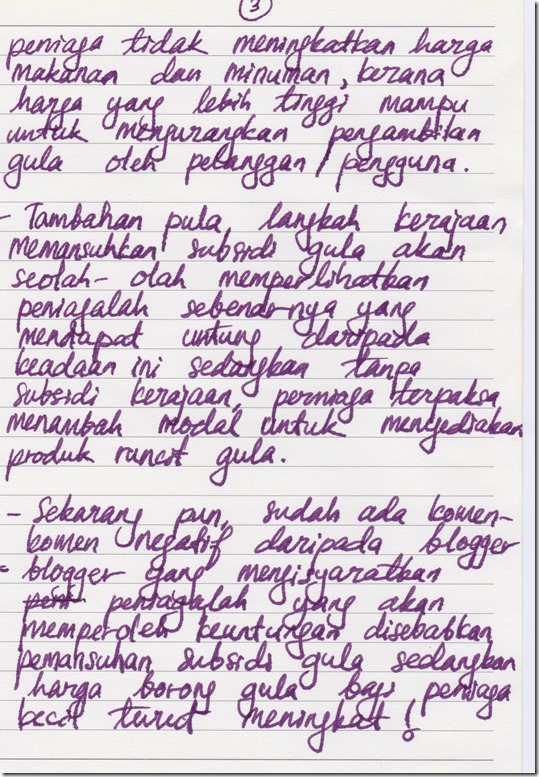 3
peniaga tidak meningkatkan harga
makanan dan minuman, kerana
harga yang lebih tinggi mampu
untuk mengurangkan pengambilan
gula oleh pelanggan / pengguna.
- Tambahan pula, langkah kerajaan
memansuhkan subsidi gula akan
seolah-olah memperlihatkan
peniagalah sebenarnya yang
mendapat untung daripada
keadaan ini sedangkan tanpa
subsidi kerajaan, perniaga terpaksa
menambah modal untuk menyediakan
produk runcit gula.
- Sekarang pun, sudah ada komen-
komen negatif daripada blogger
- blogger yang mengisyaratkan
peniagalah yang akan
memperoleh keuntungan disebabkan
pemansuhan subsidi gula sedangkan
harga borong gula bagi peniaga
kecil turut meningkat!